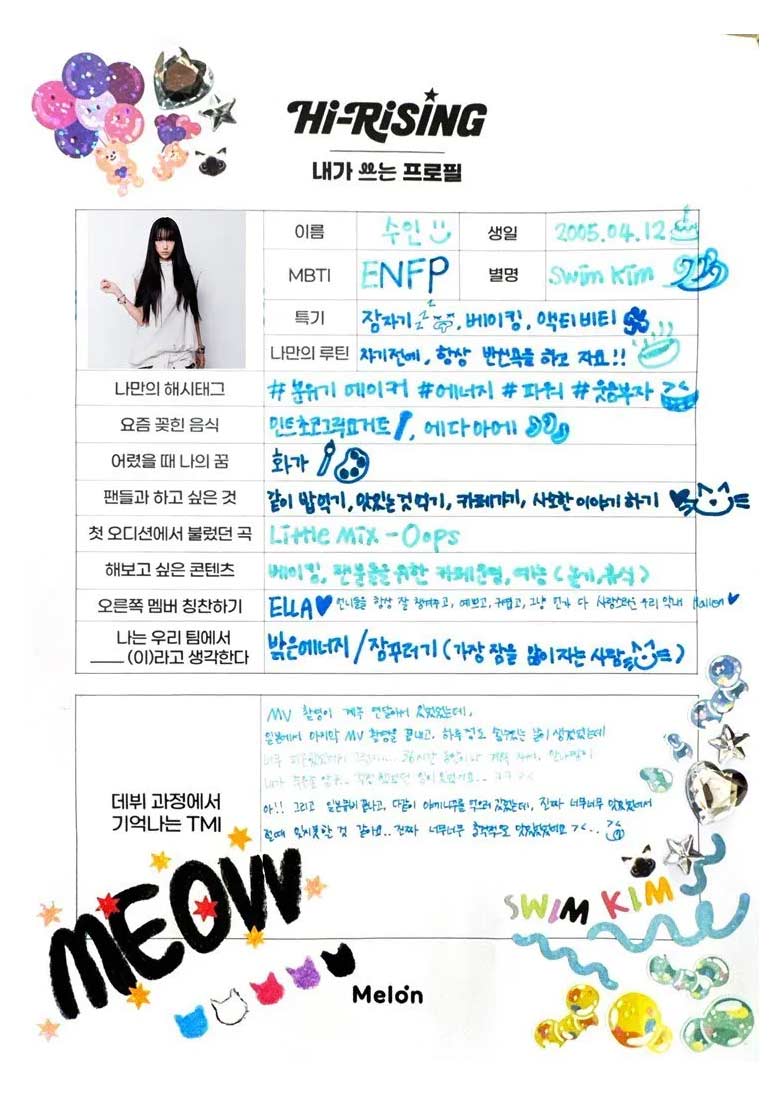 Hi-RiSiNG
내가 쓰는 프로필
이름 수인 생일 2005.04.12
MBTI ENFP 별명 Swim Kim
특기 잠자기 zzz, 베이킹, 액티비티
나만의 루틴 자기전에, 항상 반신욕을 하고 자요!!
나만의 해시태그 #분위기 메이커 #에너지 #파워 #웃음부자
요즘 꽂힌 음식 민트초코그릭요거트, 에다마메
어렸을 때 나의 꿈 화가
팬들과 하고 싶은 것 같이 밥먹기, 맛있는것 먹기, 카페가기, 사소한 이야기 하기
첫 오디션에서 불렀던 곡 Little Mix - Oops
해보고 싶은 콘텐츠 베이킹, 팬분들을 위한 카페운영, 예능
오른쪽 멤버 칭찬하기 ELLA 언니들을 항상 잘 챙겨주고, 예쁘고, 귀엽고, 그냥 다 사랑스러운 우리 막내
나는 우리 팀에서
____ (이)라고 생각한다 밝은에너지 / 잠꾸러기 (가장 잠을 많이 자는 사람)
데뷔 과정에서
기억나는 TMI
MV 촬영이 계속 연달아서 있었는데,
일본에서 마지막 MV 촬영을 끝내고, 하루 정도 쉴수있는 날이 생겼었는데
아!! 그리고 일본 끝나고, 다같이 먹으러 갔었는데, 진짜 너무너무 맛있었어서
평생 잊지못할 것 같아요.. 진짜 너무너무 충격적으로 맛있었어요 ><..
MEOW
SWIM KIM
Melon